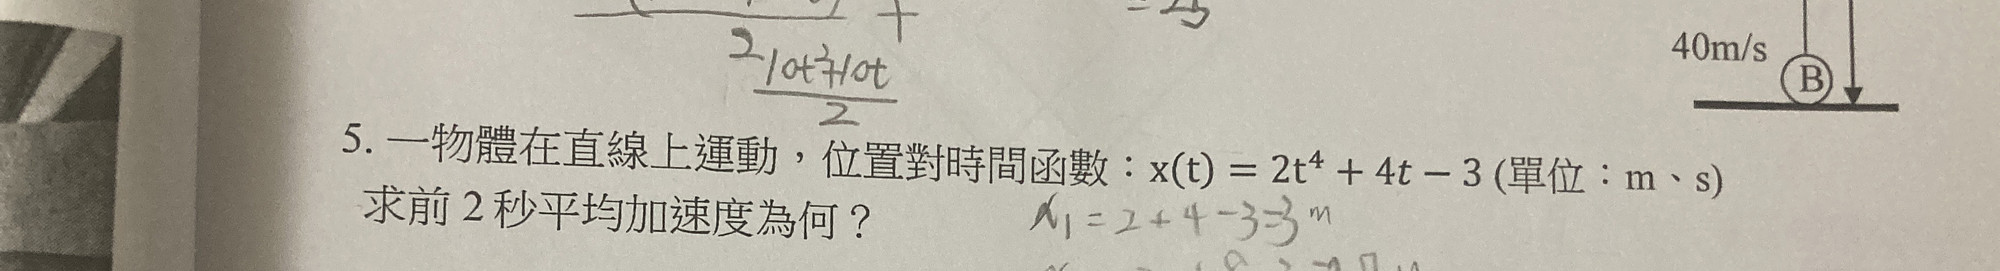 = 25
2
10t²+10t
2
40m/s
B
5. 一物體在直線上運動，位置對時間函數：x(t) = 2t⁴ + 4t − 3 (單位：m、s)
求前 2 秒平均加速度為何？
x₁ = 2 + 4 - 3 = 3 m